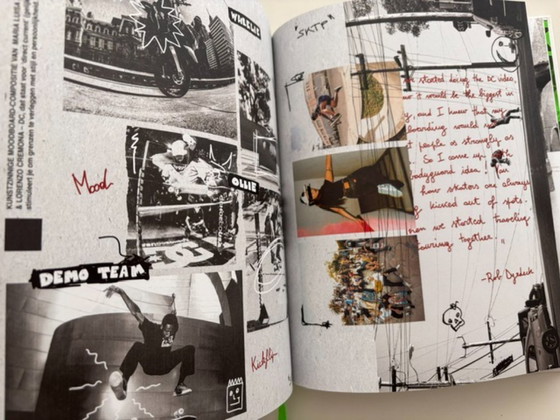 KUNSTZINNIGE MOODBOARD-COMPOSITIE VAN MARIA LUISA
& LORENZO CREMONA – DC, dat staat voor 'direct current'
stimuleert je om grenzen te verleggen met stijl en persoonlijkheid.
WHEELIE
Mood
OLLIE
DC
DEMO TEAM
Kickflip
"SKTP"
started doing the DC video,
it would be the biggest in
and I know that
would
people as strongly as
So I came up
bodyguard idea,
how skaters are always
kicked out of spots.
we started traveling
touring together."
-Rob Dyrdek